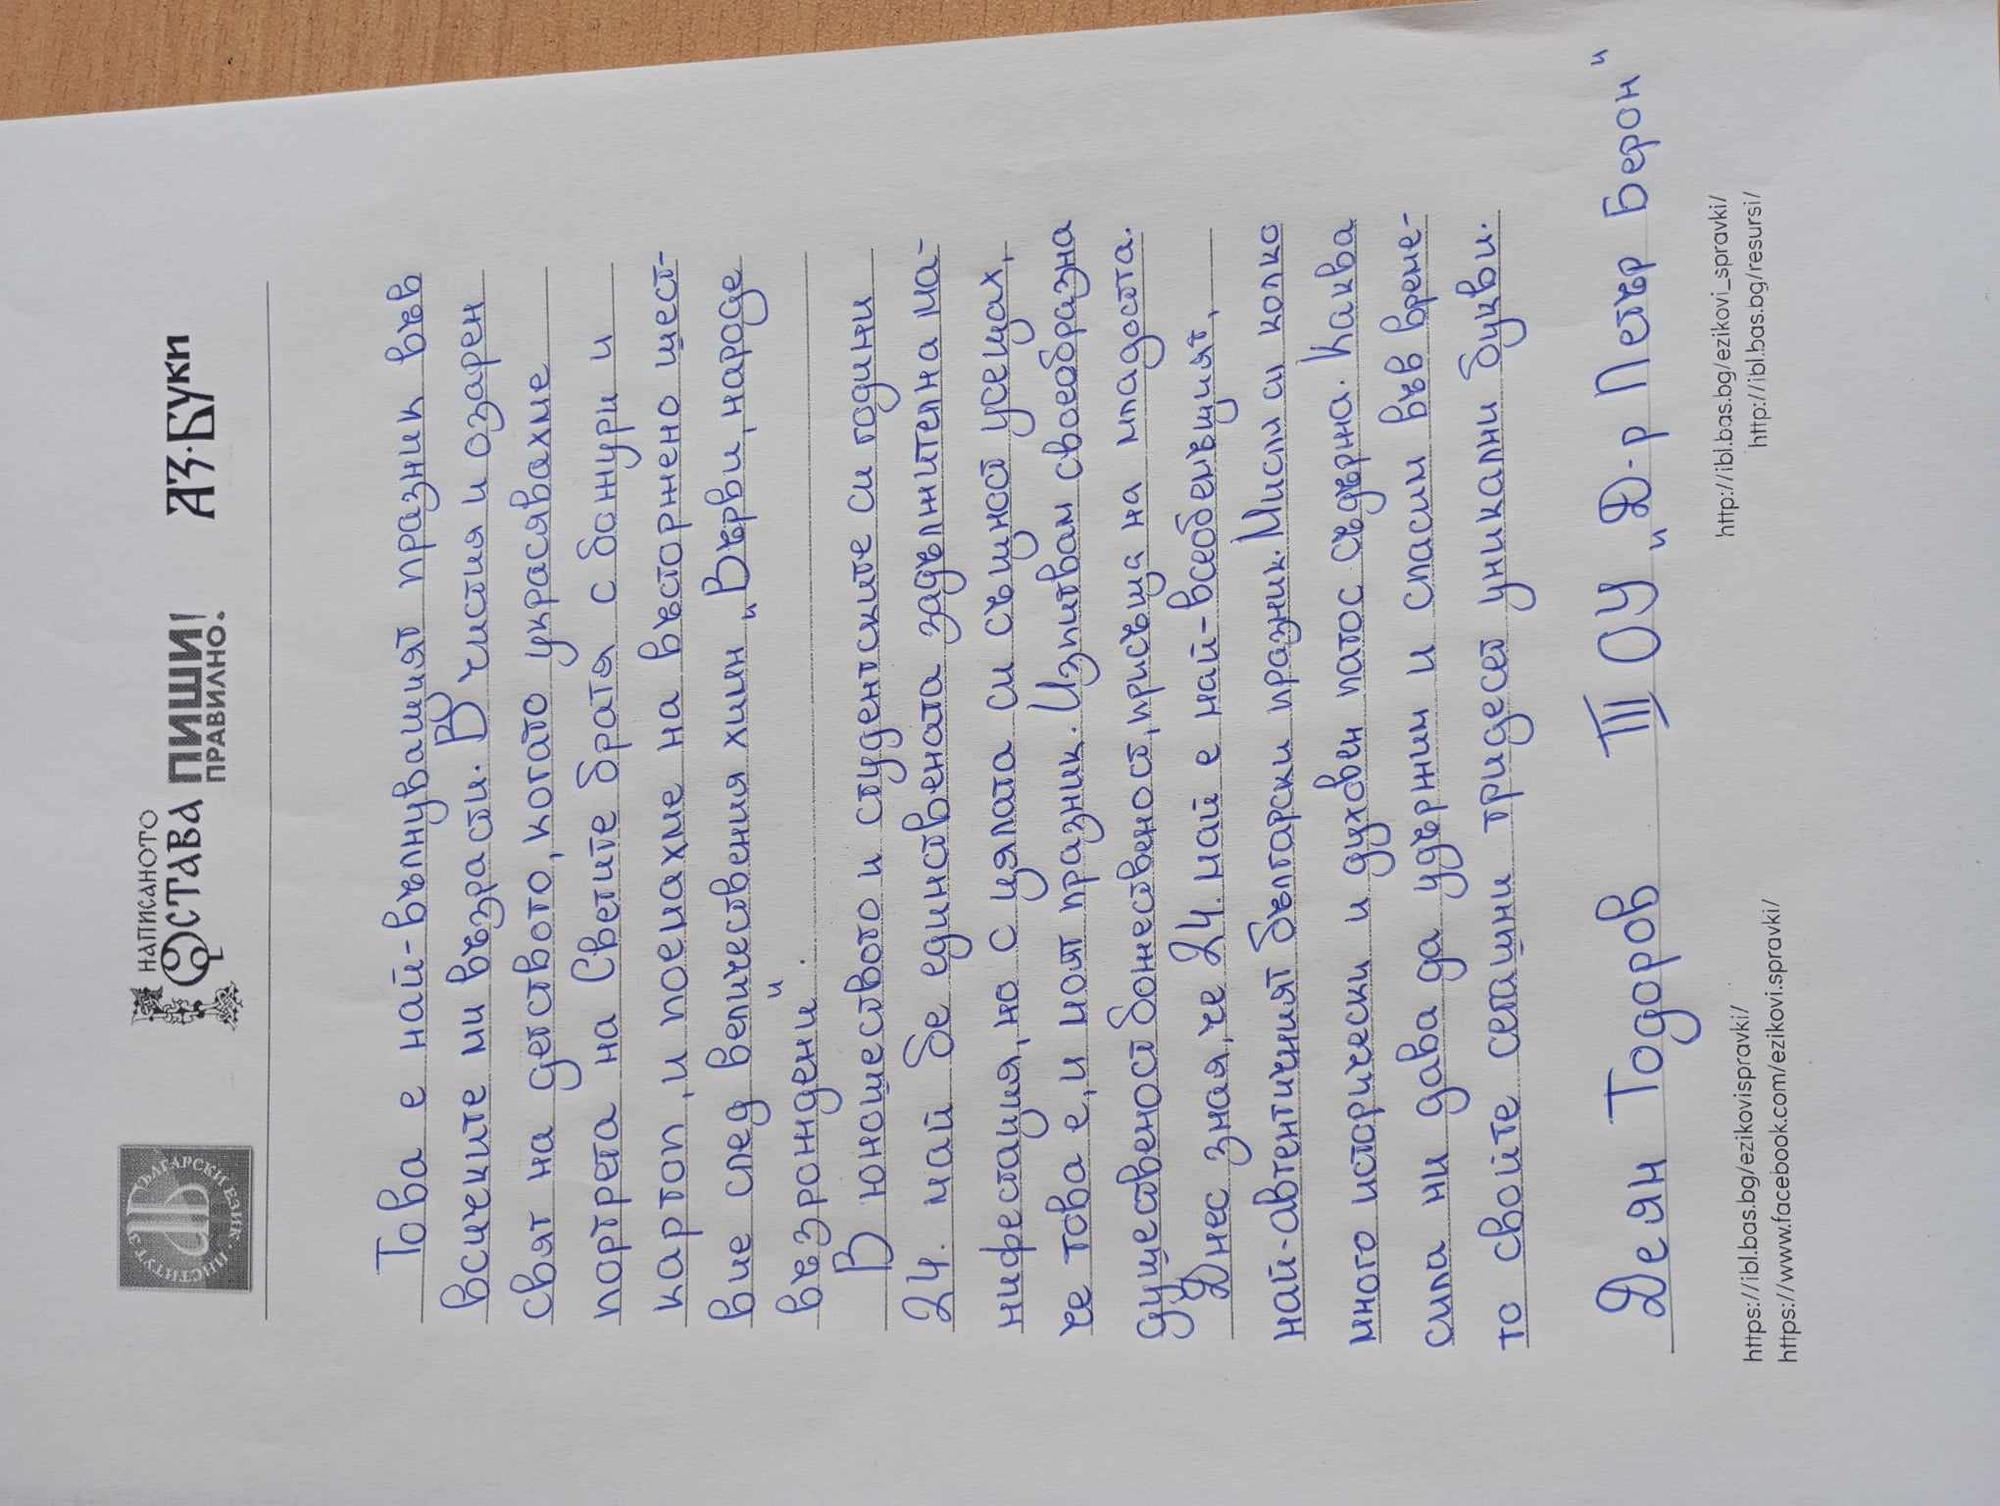 ИНСТИТУТ ЗА БЪЛГАРСКИ ЕЗИК
НАПИСАНОТО
ОСТАВА
ПИШИ!
ПРАВИЛНО.
АЗ·БУКИ
Това е най-вълнуващият празник във
всичките ми възрасти. В чистия и озарен
свят на детството, когато украсявахме
портрета на Светите братя с божури и
картоп, и поемахме на възторжено шест-
вие след величествения химн „Върви, народе
възродени“.
В юношеството и студентските си години
24. май бе единствената задължителна ма-
нифестация, но с цялата си същност усещах,
че това е, и моят празник. Изпитвам своеобразна
същественост божественост, присъща на младостта.
Днес зная, че 24. май е най-всеобемащият,
най-автентичният български празник. Мисля си колко
много исторически и духовен патос съдържа. Каква
сила ни дава да удържим и спасим във време-
то своите сеташни тридесет уникални букви.
Деян Тодоров III ОУ „Д-р Петър Берон“
https://ibl.bas.bg/ezikovispravki/
https://www.facebook.com/ezikovi.spravki/
http://ibl.bas.bg/ezikovi_spravki/
http://ibl.bas.bg/resursi/